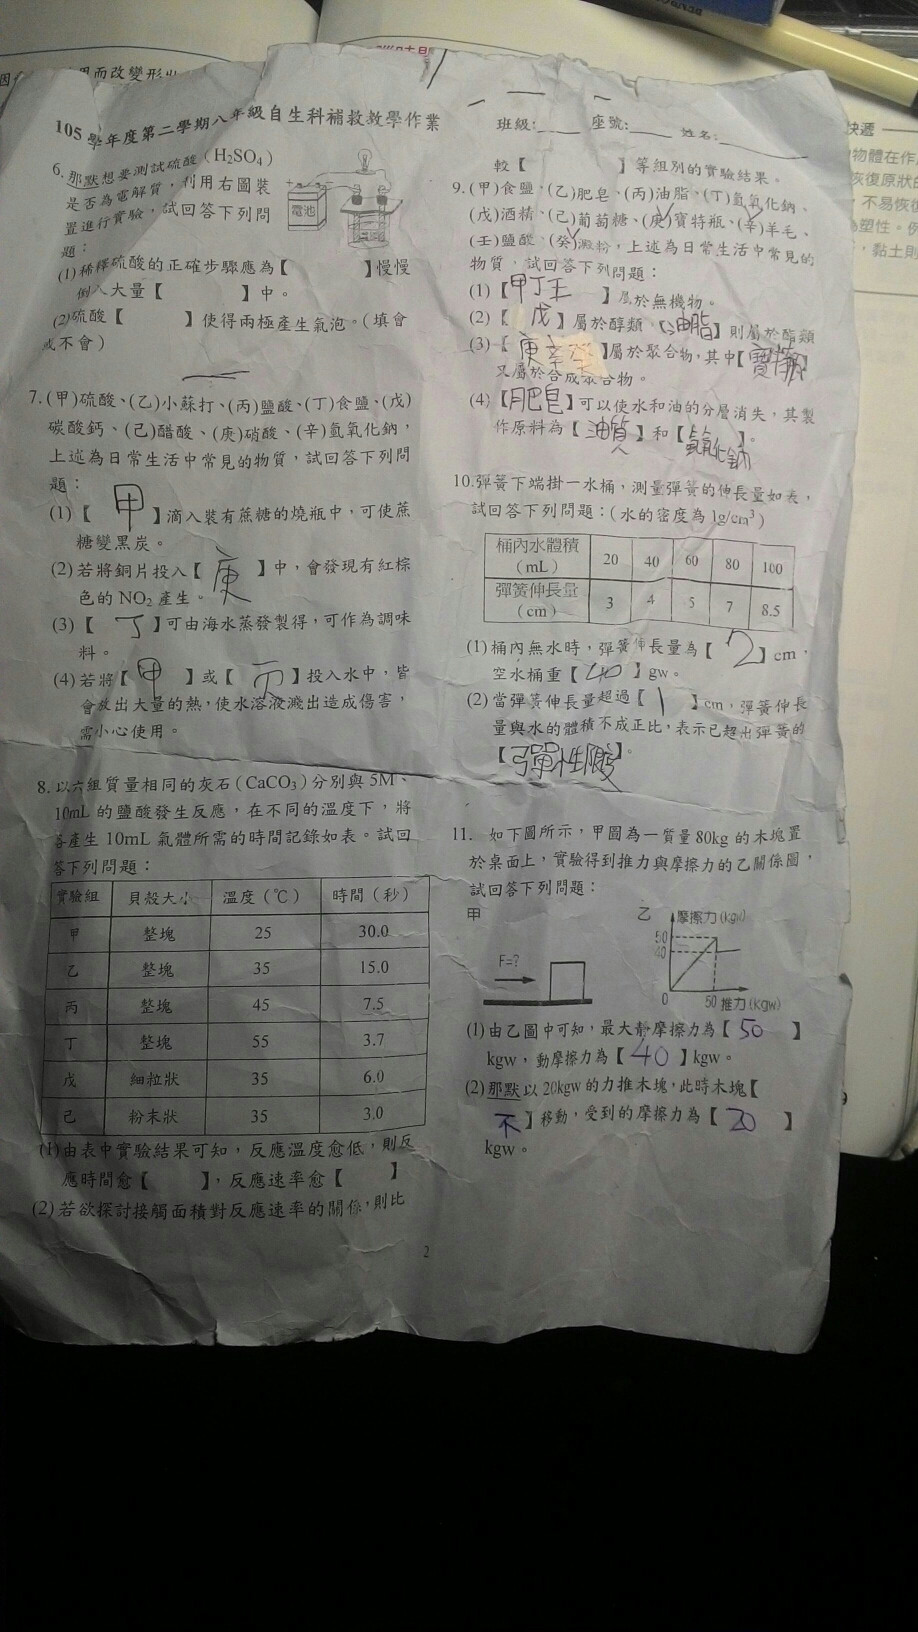 105學年度第二學期八年級自生科補救教學作業
班級: 座號: 姓名:
6.那默想要測試硫酸(H2SO4)
是否為電解質,利用右圖裝
置進行實驗,試回答下列問
題:
電池
(1)稀釋硫酸的正確步驟應為【 】慢慢
倒入大量【 】中。
(2)硫酸【 】使得兩極產生氣泡。(填會
或不會)
7.(甲)硫酸、(乙)小蘇打、(丙)鹽酸、(丁)食鹽、(戊)
碳酸鈣、(己)醋酸、(庚)硝酸、(辛)氫氧化鈉,
上述為日常生活中常見的物質,試回答下列問
題:
(1)【 甲 】滴入裝有蔗糖的燒瓶中,可使蔗
糖變黑炭。
(2)若將銅片投入【 庚 】中,會發現有紅棕
色的NO2產生。
(3)【 丁 】可由海水蒸發製得,可作為調味
料。
(4)若將【 甲 】或【 丙 】投入水中,皆
會放出大量的熱,使水溶液濺出造成傷害,
需小心使用。
8.以六組質量相同的灰石(CaCO3)分別與5M、
10mL的鹽酸發生反應,在不同的溫度下,將
各產生10mL氣體所需的時間記錄如表。試回
答下列問題:
實驗組 貝殼大小 溫度(℃) 時間(秒)
甲 整塊 25 30.0
乙 整塊 35 15.0
丙 整塊 45 7.5
丁 整塊 55 3.7
戊 細粒狀 35 6.0
己 粉末狀 35 3.0
(1)由表中實驗結果可知,反應溫度愈低,則反
應時間愈【 】,反應速率愈【 】
(2)若欲探討接觸面積對反應速率的關係,則比
較【 】等組別的實驗結果。
9.(甲)食鹽、(乙)肥皂、(丙)油脂、(丁)氫氧化鈉、
(戊)酒精、(己)葡萄糖、(庚)寶特瓶、(辛)羊毛、
(壬)鹽酸、(癸)澱粉,上述為日常生活中常見的
物質,試回答下列問題:
(1)【甲丁壬 】屬於無機物。
(2)【 戊 】屬於醇類、【油脂】則屬於酯類
(3)【庚辛癸】屬於聚合物,其中【寶特瓶】
又屬於合成聚合物。
(4)【肥皂】可以使水和油的分層消失,其製
作原料為【油質】和【氫氧化鈉】。
10.彈簧下端掛一水桶,測量彈簧的伸長量如表,
試回答下列問題:(水的密度為1g/cm3)
桶內水體積(mL) 20 40 60 80 100
彈簧伸長量(cm) 3 4 5 7 8.5
(1)桶內無水時,彈簧伸長量為【 2 】cm,
空水桶重【40】gw。
(2)當彈簧伸長量超過【 1 】cm,彈簧伸長
量與水的體積不成正比,表示已超出彈簧的
【彈性限度】。
11. 如下圖所示,甲圖為一質量80kg的木塊置
於桌面上,實驗得到推力與摩擦力的乙關係圖,
試回答下列問題:
甲
F=?
乙 摩擦力(kgw)
50
40
0 50 推力(kgw)
(1)由乙圖中可知,最大靜摩擦力為【 50 】
kgw,動摩擦力為【 40 】kgw。
(2)那默以20kgw的力推木塊,此時木塊【
不】移動,受到的摩擦力為【 20 】
kgw。
2